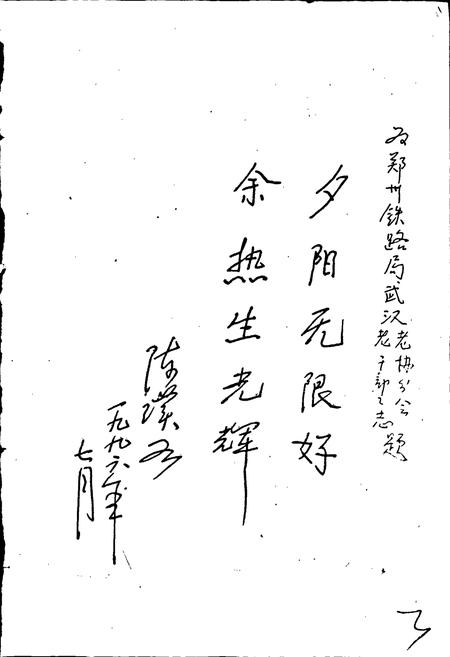 为郑州铁路局武汉老协分会
老干部之志题
夕阳无限好
余热生光辉
陈璞如
一九九六年
七月